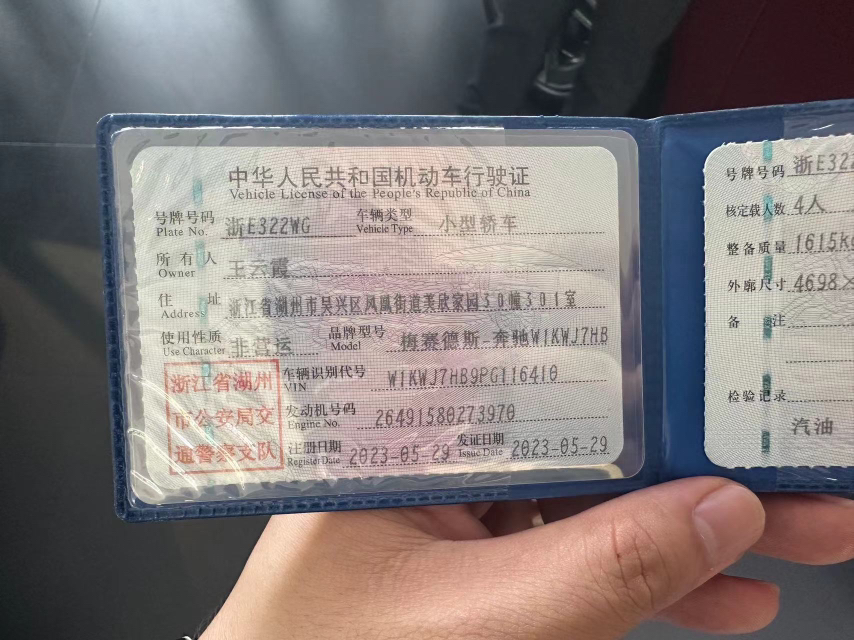 中华人民共和国机动车行驶证
Vehicle License of the People's Republic of China
号牌号码 浙E322WG 车辆类型 小型轿车
Plate No. Vehicle Type
所有人 王云霞
Owner
住址 浙江省湖州市吴兴区凤凰街道美欣家园30幢301室
Address
使用性质 非营运 品牌型号 梅赛德斯-奔驰W1KWJ7HB
Use Character Model
浙江省湖州
市公安局交
通警察支队
车辆识别代号 W1KWJ7HB9PG116410
VIN
发动机号码 26491580273970
Engine No.
注册日期 2023-05-29 发证日期 2023-05-29
Register Date Issue Date
号牌号码 浙E322
核定载人数 4人
整备质量 1615k
外廓尺寸 4698×
备注
检验记录
汽油